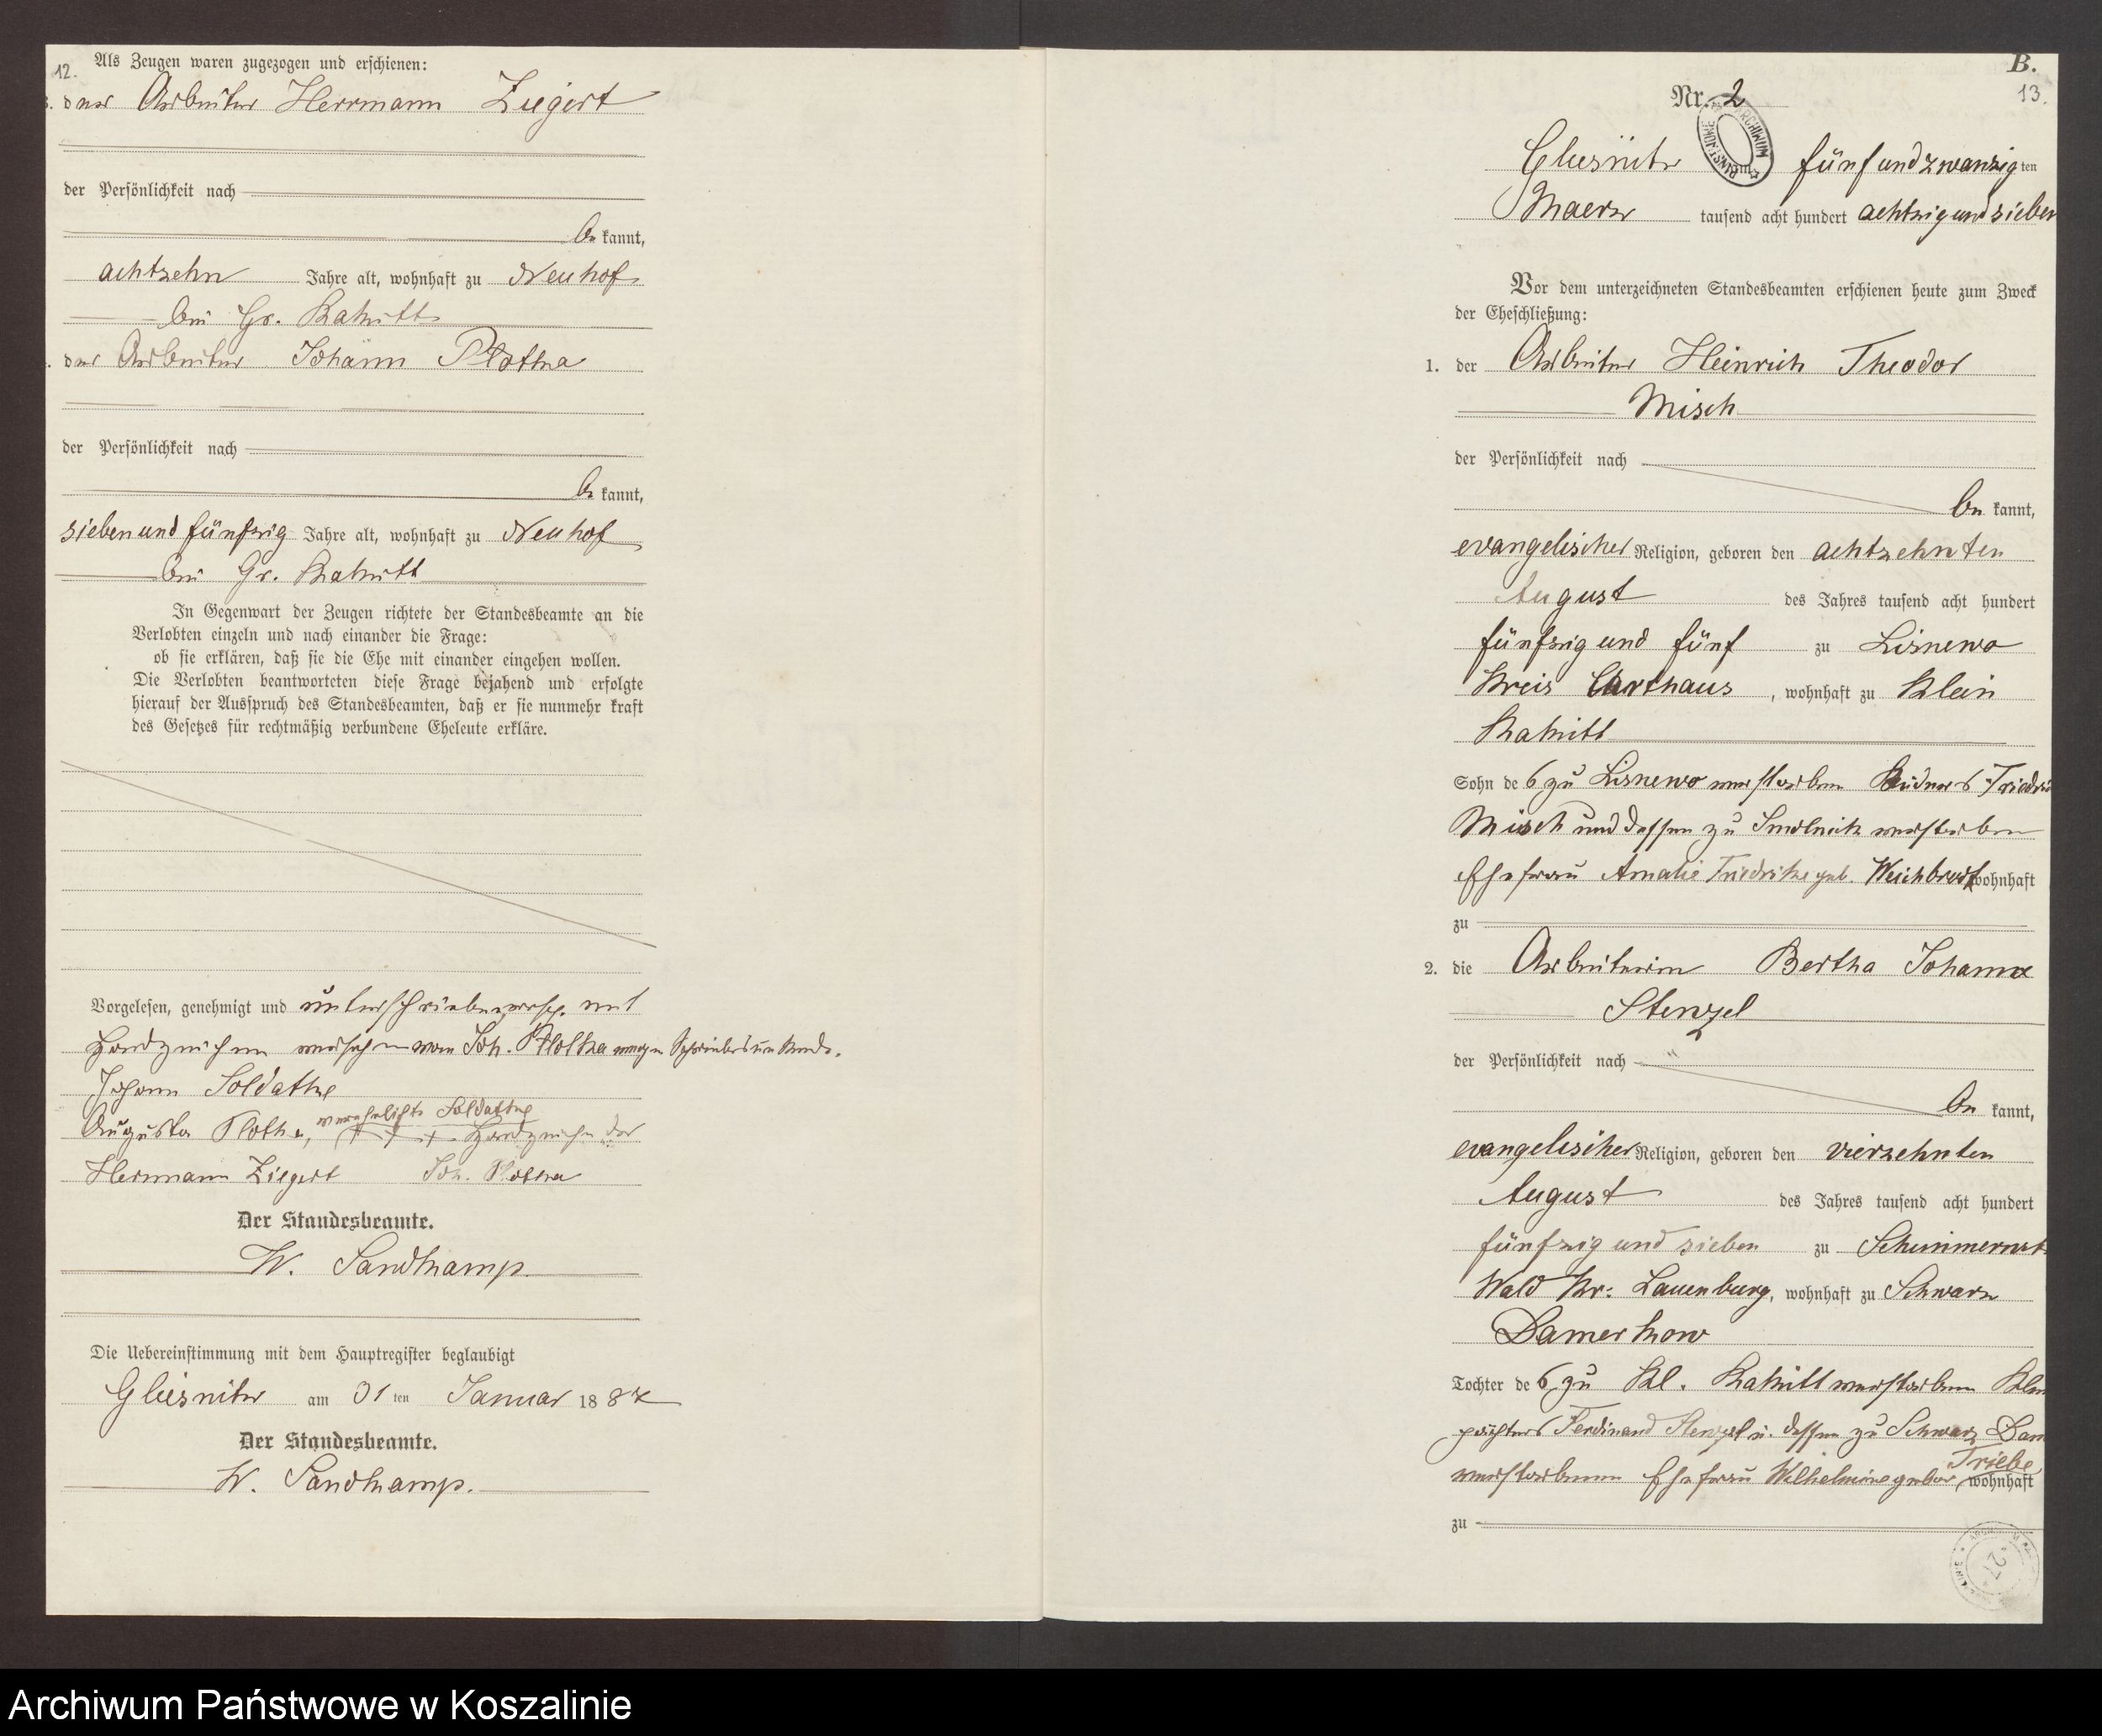 12.
Als Zeugen waren zugezogen und erschienen:
der Arbeiter Herrmann Ziegert
der Persönlichkeit nach
be kannt,
achtzehn Jahre alt, wohnhaft zu Neuhof
bei Gr. Rakitt
der Arbeiter Johann Plotka
der Persönlichkeit nach
be kannt,
siebenundfünfzig Jahre alt, wohnhaft zu Neuhof
bei Gr. Rakitt
In Gegenwart der Zeugen richtete der Standesbeamte an die
Verlobten einzeln und nach einander die Frage:
ob sie erklären, daß sie die Ehe mit einander eingehen wollen.
Die Verlobten beantworteten diese Frage bejahend und erfolgte
hierauf der Ausspruch des Standesbeamten, daß er sie nunmehr kraft
des Gesetzes für rechtmäßig verbundene Eheleute erkläre.
Vorgelesen, genehmigt und unterschrieben, resp. mit
Handzeichen versehen vom Joh. Plotka wegen Schreibensunkunde.
Johann Soldathe
Augusta Plotka, verehelichte Soldathe
+ + + Handzeichen des
Hermann Ziegert Joh. Plotka
Der Standesbeamte.
W. Sandkamp
Die Uebereinstimmung mit dem Hauptregister beglaubigt
Gliesnitz am 31 ten Januar 18 87
Der Standesbeamte.
W. Sandkamp.
B.
13.
Nr. 2
Gliesnitz fünfundzwanzig ten
Maerz tausend acht hundert achtzig und sieben
Vor dem unterzeichneten Standesbeamten erschienen heute zum Zweck
der Eheschließung:
1. der Arbeiter Heinrich Theodor
Misch
der Persönlichkeit nach
be kannt,
evangelischer Religion, geboren den achtzehnten
August des Jahres tausend acht hundert
fünfzig und fünf zu Lisnewo
Kreis Carthaus, wohnhaft zu Klein
Rakitt
Sohn des zu Lisnewo verstorbenen Büdners Friedri
Misch und dessen zu Smolnick verstorbenen
Ehefrau Amalie Friedrike geb. Weichbrodt wohnhaft
zu
2. die Arbeiterin Bertha Johanna
Stenzel
der Persönlichkeit nach
be kannt,
evangelischer Religion, geboren den vierzehnten
August des Jahres tausend acht hundert
fünfzig und sieben zu Schimmerwitz
Wald Kr: Lauenburg, wohnhaft zu Schwarz
Damerkow
Tochter des zu Kl. Rakitt verstorbenen Klein
pächters Ferdinand Stenzel u. dessen zu Schwarz Dam
verstorbenen Ehefrau Wilhelmine gebor. Friebe, wohnhaft
zu
27
Archiwum Państwowe w Koszalinie